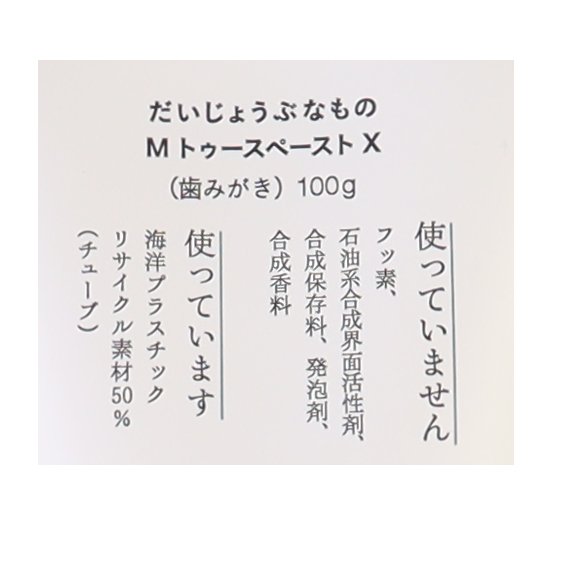 だいじょうぶなもの
M トゥースペースト X
（歯みがき）100g
使っていません
フッ素、
石油系合成界面活性剤、
合成保存料、発泡剤、
合成香料
使っています
海洋プラスチック
リサイクル素材50%
（チューブ）